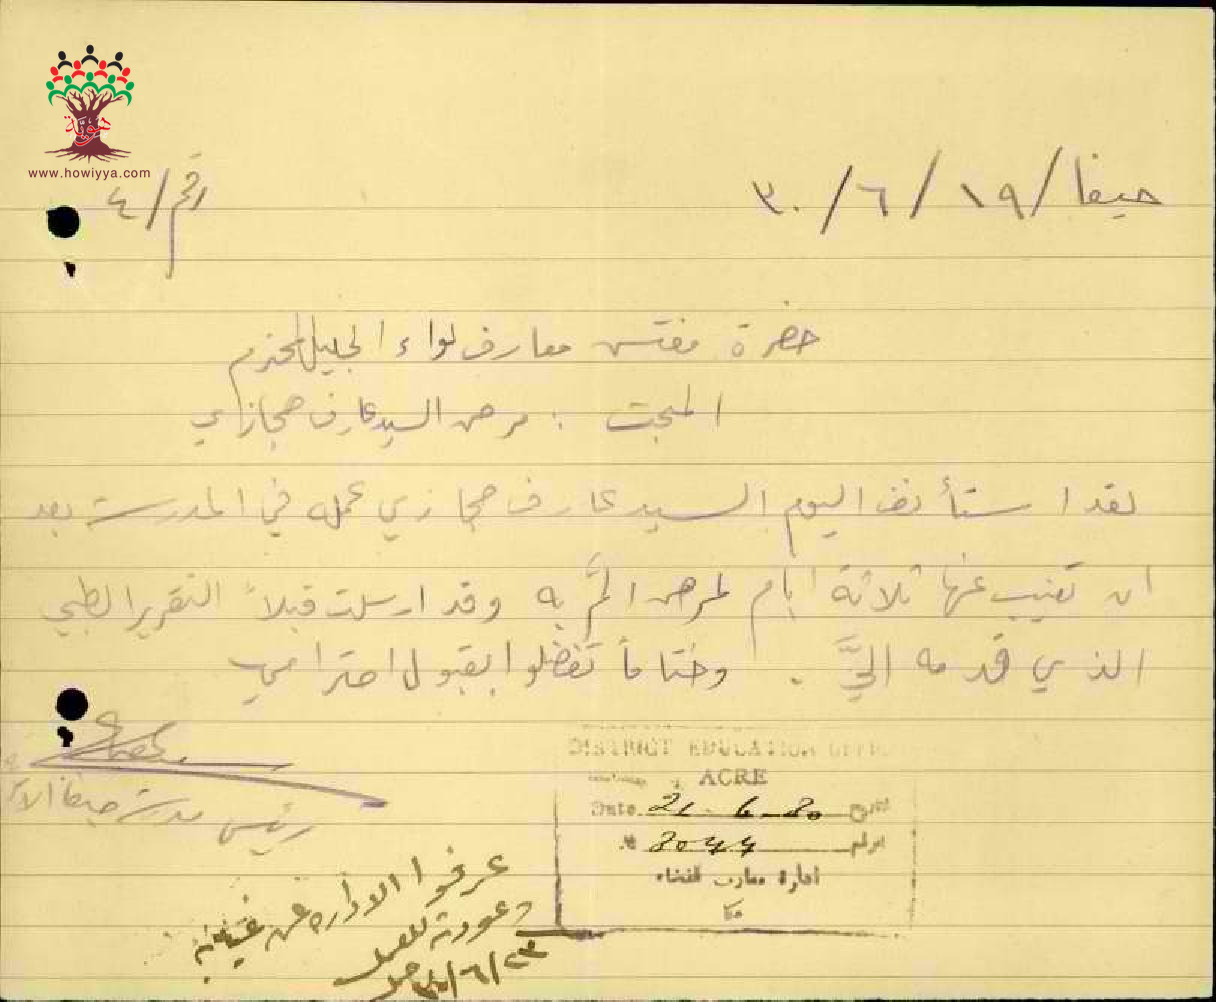 هوية
www.howiyya.com
حيفا/١٩/٦/٣٠
رقم/٤
حضرة مفتش معارف لواء الجليل المحترم
المبحث : مرض السيد عارف حجازي
لقد استأنف اليوم السيد عارف حجازي عمله في المدرسة بعد
ان تغيب عنها ثلاثة ايام لمرض المَّ به وقد ارسلت قبلاً التقرير الطبي
الذي قدمه اليَّ . وختاماً تفضلوا بقبول احترامي
رئيس مدرسة حيفا
DISTRICT EDUCATION OFFICE
ACRE
Date 21-6-30 تاريخ
№ 3044 الرقم
ادارة معارف قضاء
عكا
عرفوا الادارة عن غيابه
وعودته للعمل
٢٣/٦/٣٠